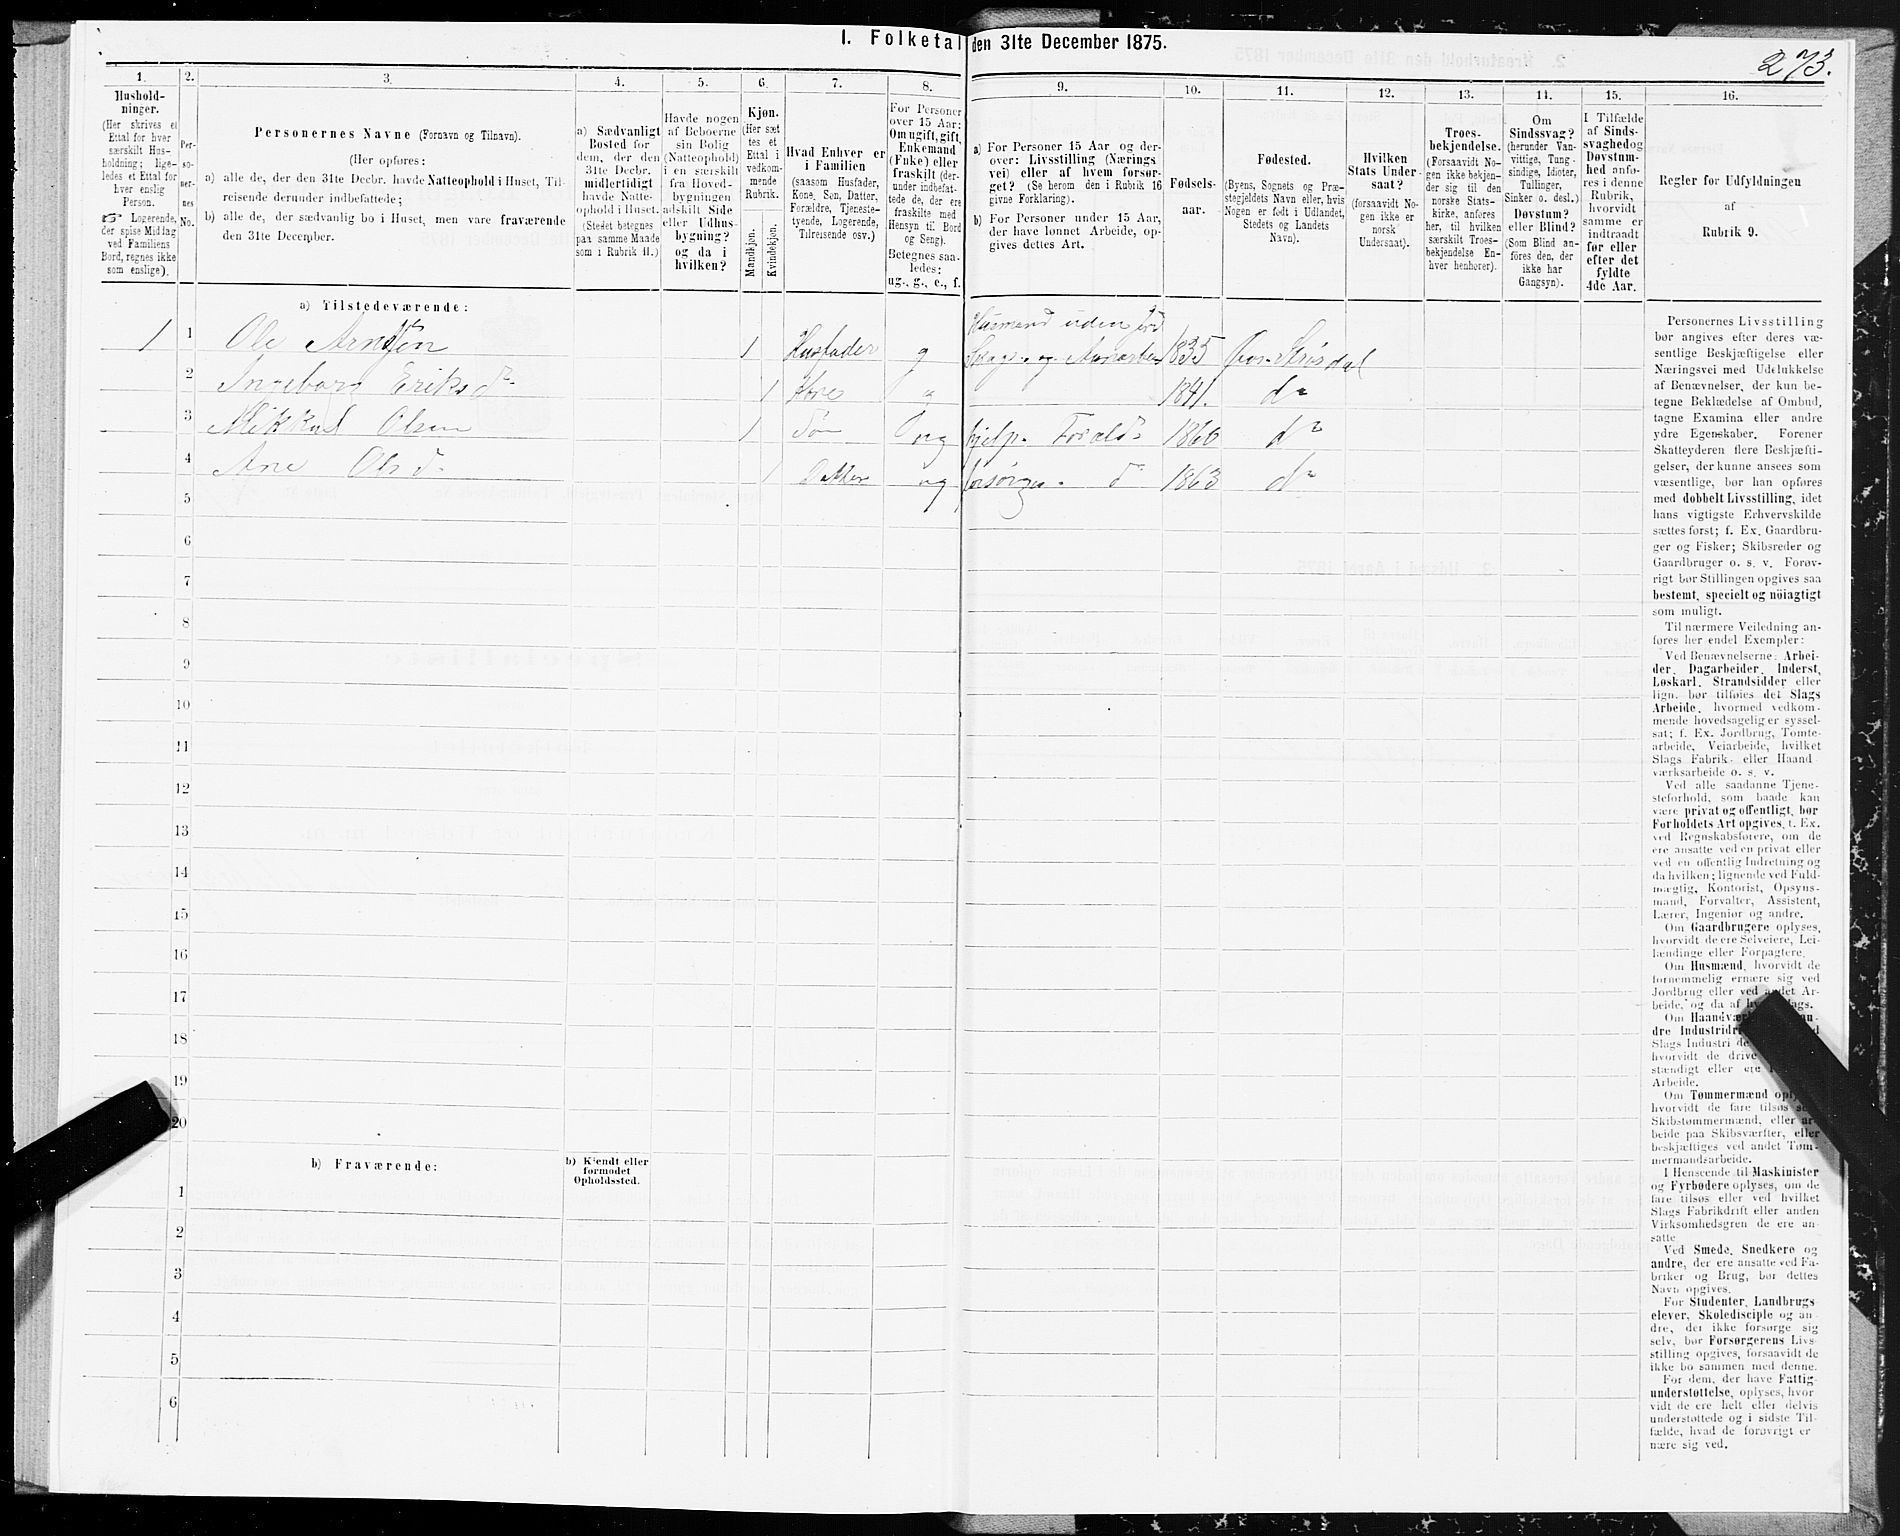 I. Folketal den 31te December 1875.
273.
1.
Hushold-
ninger.
(Her skrives et
Ettal for hver
særskilt Hus-
holdning; lige-
ledes et Ettal for
hver enslig
Person.
☞ Logerende,
der spise Middag
ved Familiens
Bord, regnes ikke
som enslige).
2.
Per-
so-
ner-
nes
No.
3.
Personernes Navne (Fornavn og Tilnavn).
(Her opføres:
a) alle de, der den 31te Decbr. havde Natteophold i Huset, Til-
reisende derunder indbefattede;
b) alle de, der sædvanlig bo i Huset, men vare fraværende
den 31te December.
4.
a) Sædvanligt
Bosted for
dem, der den
31te Decbr.
midlertidigt
havde Natte-
ophold i Huset.
(Stedet betegnes
paa samme Maade
som i Rubrik 11.)
5.
Havde nogen
af Beboerne
sin Bolig
(Natteophold)
i en særskilt
fra Hoved-
bygningen
adskilt Side
eller Udhus-
bygning?
og da i
hvilken?
6.
Kjøn.
(Her sæt
tes et
Ettal i
vedkom-
mende
Rubrik.
Mandkjøn.
Kvindekjøn.
7.
Hvad Enhver er
i Familien
(saasom Husfader,
Kone, Søn, Datter,
Forældre, Tjeneste-
tyende, Logerende,
Tilreisende osv.)
8.
For Personer
over 15 Aar:
Om ugift, gift,
Enkemand
(Enke) eller
fraskilt (der-
under indbefat-
tede de, der ere
fraskilte med
Hensyn til Bord
og Seng).
Betegnes saa-
ledes:
ug., g., e., f.
9.
a) For Personer 15 Aar og der-
over: Livsstilling (Nærings
vei) eller af hvem forsør-
get? (Se herom den i Rubrik 16
givne Forklaring).
b) For Personer under 15 Aar,
der have lønnet Arbeide, op-
gives dettes Art.
10.
Fødsels-
aar.
11.
Fødested.
(Byens, Sognets og Præ-
stegjeldets Navn eller, hvis
Nogen er født i Udlandet,
Stedets og Landets
Navn).
12.
Hvilken
Stats Under-
saat?
(forsaavidt No-
gen ikke er
norsk
Undersaat).
13.
Troes-
bekjendelse.
(Forsaavidt No-
gen ikke bekjen-
der sig til den
norske Stats-
kirke, anføres
her, til hvilken
særskilt Troes-
bekjendelse En-
hver henhører).
14.
Om
Sindssvag?
(herunder Van-
vittige, Tung-
sindige, Idioter,
Tullinger,
Sinker o. desl.)
Døvstum?
eller Blind?
(Som Blind an-
føres den, der
ikke har
Gangsyn).
15.
I Tilfælde
af Sinds-
svaghed og
Døvstum-
hed anfø-
res i denne
Rubrik,
hvorvidt
samme er
indtraadt
før eller
efter det
fyldte
4de Aar.
16.
Regler for Udfyldningen
af
Rubrik 9.
a) Tilstedeværende:
1 1 Ole Arntsen 1 Husfader g Husmand uden Jord 1835
2 Ingeborg Eriksdr. 1 Kone g 1841. do
3 Mikkel Olsen 1 Søn ug hjelp. 1860 do
4 Ane Olsd. 1 Datter ug forsørges. do 1863 do
5
6
7
8
9
10
11
12
13
14
15
16
17
18
19
20
b) Fraværende:
b) Kjendt eller
formodet
Opholdssted.
1
2
3
4
5
6
Personernes Livsstilling
bør angives efter deres væ-
sentlige Beskjæftigelse eller
Næringsvei med Udelukkelse
af Benævnelser, der kun be-
tegne Beklædelse af Ombud,
tagne Examina eller andre
ydre Egenskaber. Forener
Skatteyderen flere Beskjæfti-
gelser, der kunne ansees som
væsentlige, bør han opføres
med dobbelt Livsstilling, idet
hans vigtigste Erhvervskilde
sættes først; f. Ex. Gaardbru-
ger og Fisker; Skibsreder og
Gaardbruger o. s. v. Forøv-
rigt bør Stillingen opgives saa
bestemt, specielt og nöiagtigt
som muligt.
Til nærmere Veiledning an-
føres her endel Exempler:
Ved Benævnelserne: Arbei-
der, Dagarbeider, Inderst,
Løskarl, Strandsidder eller
lign. bør tilføies det Slags
Arbeide, hvormed vedkom-
mende hovedsagelig er syssel-
sat; f. Ex. Jordbrug, Tomte-
arbeide, Veiarbeide, hvilket
Slags Fabrik- eller Haand
værksarbeide o. s. v.
Ved alle saadanne Tjene-
steforhold, som baade kan
være privat og offentligt, bør
Forholdets Art opgives, f. Ex.
ved Regnskabsførere, om de
ere ansatte ved en privat eller
ved en offentlig Indretning og
da hvilken; lignende ved Fuld-
mægtig, Kontorist, Opsyns-
mand, Forvalter, Assistent,
Lærer, Ingeniør og andre.
Om Gaardbrugere oplyses,
hvorvidt de ere Selveiere, Lei-
lændinge eller Forpagtere.
Om Husmænd, hvorvidt de
fornemmelig ernære sig ved
Jordbrug eller ved andet Ar-
beide, og da af
Om
dre
Slags Industri
hvorvidt de drive
stændigt eller ere
Arbeide.
Om Tømmermænd
hvorvidt de fare tilsøs
Skibstømmermænd, eller ar-
beide paa Skibsværfter, eller
beskjæftiges ved andet Tøm-
mermandsarbeide.
I Henseende til Maskinister
og Fyrbødere oplyses, om de
fare tilsøs eller ved hvilket
Slags Fabrikdrift eller anden
Virksomhedsgren de ere an-
satte
Ved Smede, Snedkere og
andre, der ere ansatte ved Fa-
briker og Brug, bør dettes
Navn opgives.
For Studenter, Landbrugs
elever, Skoledisciple og an-
dre, der ikke forsørge sig
selv, bør Forsørgerens Livs-
stilling opgives, forsaavidt de
ikke bo sammen med denne.
For dem, der have Fattig-
understøttelse, oplyses, hvor
vidt de ere helt eller delvis
understøttede og i sidste Til-
fælde, hvad de forøvrigt er
nære sig ved.